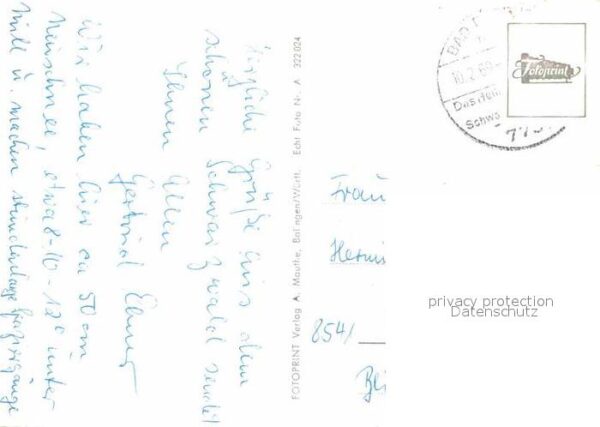 Herzliche Grüße aus dem
schönen Schwarzwald sendet
Ihnen Allen
Gertrud
Wir haben hier ca 50 cm
Neuschnee, etwa 8-10-12° unter
Null u. machen stundenlange Spaziergänge
FOTOPRINT Verlag A. Mauthe, Balingen/Württ. Echt Foto Nr. A 322 024
BAD
10.2.69
Das Heil
Schwa
Fotoprint
Frau
Hermi
8541
privacy protection
Datenschutz